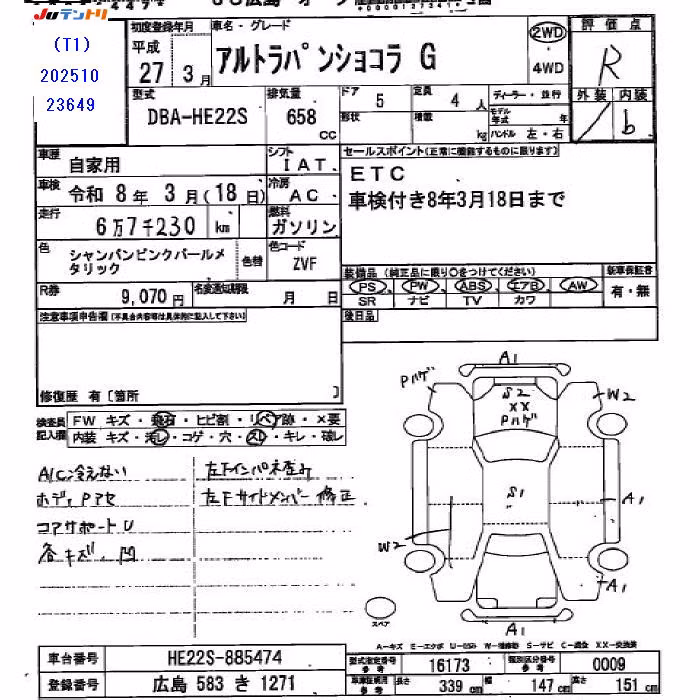 Juテントリ
(T1)
202510
23649
初度登録年月
平成
27 3月
車名・グレード
アルトラパンショコラ G
2WD
4WD
評価点
R
外装 内装
/ b
型式
DBA-HE22S
排気量
658 cc
ドア 5
形状
定員 4 人
積載 kg
ディーラー・並行
モデル年式 年
ハンドル 左・右
車歴 自家用
シフト IAT
車検 令和 8年 3月(18日)
冷房 AC
走行 6万7千230 km
燃料 ガソリン
色 シャンパンピンクパールメタリック
色替
色コード ZVF
R券 9,070円
名変通知期限 月 日
セールスポイント(正常に機能するものに限ります)
ETC
車検付き8年3月18日まで
装備品(純正品に限り○をつけてください)
PS PW ABS エアB AW
SR ナビ TV カワ
新車保証書
有・無
後日品
注意事項申告欄(不具合内容等は具体的に記入して下さい)
修復歴 有〔箇所 〕
検査員記入欄
FW キズ・飛石・ヒビ割・リペア跡・×要
内装 キズ・汚レ・コゲ・穴・スレ・キレ・破レ
A/C冷えない
ボディPアセ
コアサポートU
各キズ、凹
左Fインパネ歪み
左Fサイドメンバー修正
A1
Pハゲ
S2
XX
Pハゲ
W2
S1
A1
W2
A1
A1
スペア
A=キズ E=エクボ U=凹み W=補修跡 S=サビ C=腐食 XX=交換済
車台番号 HE22S-885474
登録番号 広島 583 き 1271
型式指定番号 参考 16173
類別区分番号 参考 0009
車検証明用 参考
長さ 339 cm
幅 147 cm
高さ 151 cm